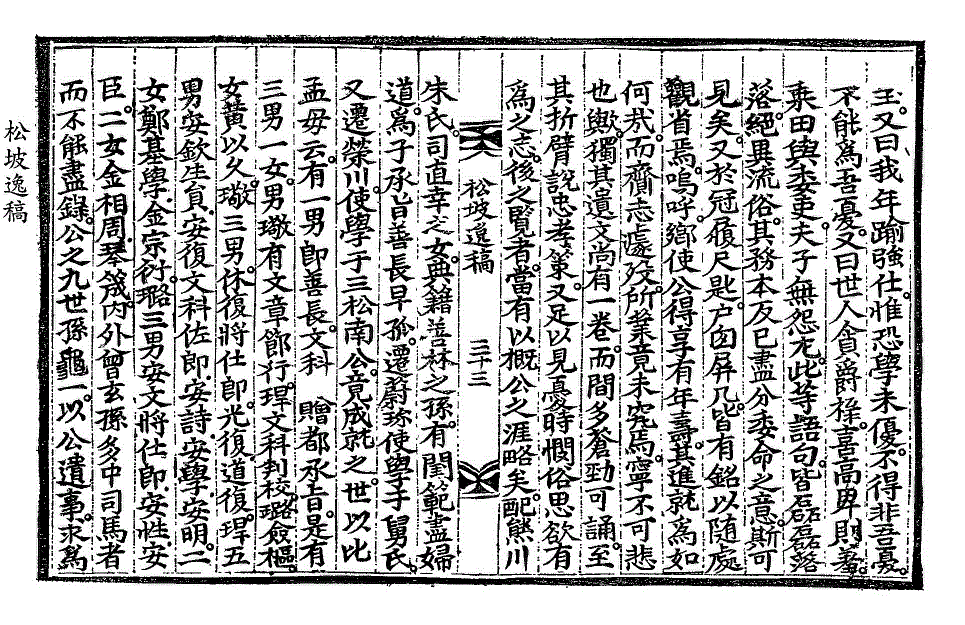 玉又曰我年踰強仕惟恐學未優不得非吾憂
不能爲吾憂又曰世人貪爵祿喜高卑則羞
乘田與委吏夫子無怨尤此等語句皆磊磊落
落絕異流俗其務本反已盡分委命之意斯可
見矣又於冠履尺匙戶囱屛几皆有銘以隨處
觀省焉嗚呼鄕使公得享有年壽其進就爲如
何哉而齎志遽歿所業竟未究焉寧不可悲
也歟獨其遺文尙有一卷而間多蒼勁可誦至
其折臂說忠孝策又足以見憂時憫俗思欲有
爲之志後之覽者當有以槪公之涯略矣配熊川
松坡逸稿 三十三
朱氏司直幸之女典籍善林之孫有閨範盡婦
道爲子承旨善長早孤遷蔚珍使學于舅氏
又遷榮川使學于三松南公竟成就之世以比
孟母云有一男卽善長文科 贈都承旨是有
三男一女男璥有文章節行琿文科判校璐僉樞
女黃以久璥三男休復將仕郎光復道復琿五
男安欽生員安復文科佐郎安詩安學安明二
女鄭基學金宗衍璐三男安文將仕郎安性安
臣二女金相周琴箴內外曾玄孫多中司馬者
而不能盡錄公之九世孫龜一以公遺事求爲
松坡逸稿